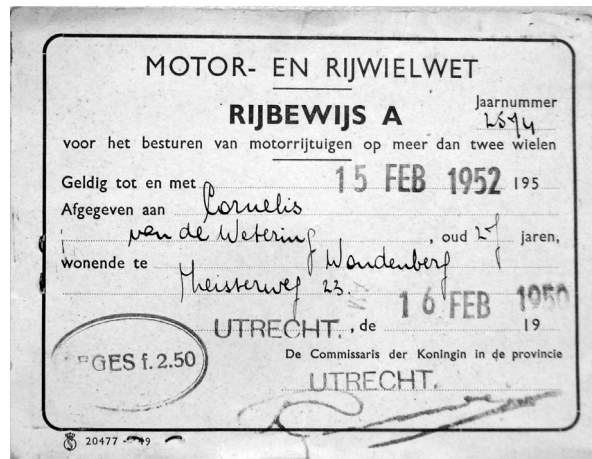 MOTOR- EN RIJWIELWET
RIJBEWIJS A
Jaarnummer
voor het besturen van motorrijtuigen op meer dan twee wielen
Geldig tot en met 15 FEB 1952 195
Afgegeven aan Cornelis
van de Wetering, oud 27 jaren,
wonende te Woudenberg
23.
16 FEB 1950
UTRECHT. , de 19
LEGES f. 2.50
De Commissaris der Koningin in de provincie
UTRECHT.
20477 - '49